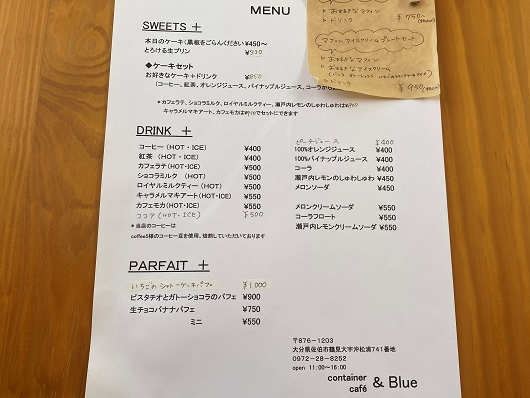 MENU
SWEETS ＋
本日のケーキ（黒板をごらんください）¥450～
とろける生プリン
◆ケーキセット
お好きなケーキ＋ドリンク ¥850
（コーヒー、紅茶、オレンジジュース、パイナップルジュース、コーラ
＊カフェラテ、ショコラミルク、ロイヤルミルクティー、瀬戸内レモンのしゅわしゅわは
キャラメルマキアート、カフェモカは でセットにできます
おすすめなマフィン
ドリンク
¥750
マフィン、アイスクリームプレートセット
おすすめなマフィン
おすすめなアイスクリーム
ドリンク
¥950
DRINK ＋
コーヒー（HOT・ICE） ¥400
紅茶 （HOT・ICE） ¥400
カフェラテ（HOT・ICE） ¥500
ショコラミルク （HOT） ¥500
ロイヤルミルクティー（HOT） ¥500
キャラメルマキアート（HOT・ICE） ¥550
カフェモカ（HOT・ICE） ¥550
ココア（HOT・ICE） ¥500
＊当店のコーヒーは
coffee5様のコーヒー豆を使用、焙煎していただいております
ピーチジュース ¥400
100%オレンジジュース ¥400
100%パイナップルジュース ¥400
コーラ ¥400
瀬戸内レモンのしゅわしゅわ ¥450
メロンソーダ ¥450
メロンクリームソーダ ¥550
コーラフロート ¥550
瀬戸内レモンクリームソーダ ¥550
PARFAIT ＋
いちごのショートケーキパフェ ¥1000
ピスタチオとガトーショコラのパフェ ¥900
生チョコバナナパフェ ¥750
ミニ ¥550
〒876-1203
大分県佐伯市鶴見大字沖松浦741番地
0972-28-8252
open 11:00～16:00
container
café & Blue